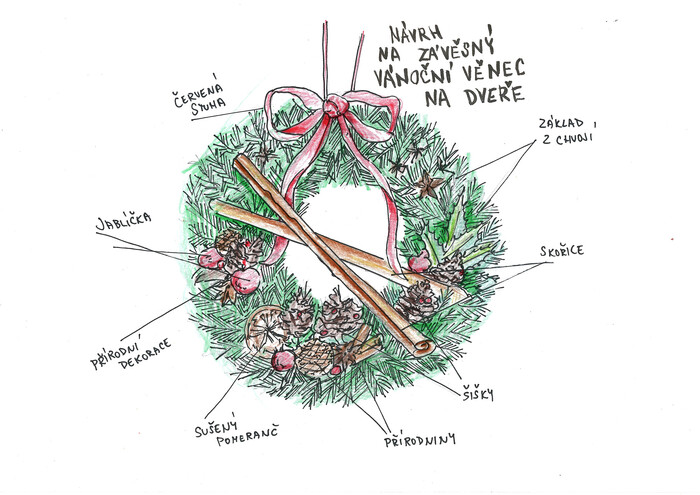 NÁVRH
NA ZÁVĚSNÝ
VÁNOČNÍ VĚNEC
NA DVEŘE
ČERVENÁ
STUHA
ZÁKLAD
Z CHVOJÍ
JABLÍČKA
SKOŘICE
PŘÍRODNÍ
DEKORACE
ŠIŠKY
SUŠENÝ
POMERANČ
PŘÍRODNINY